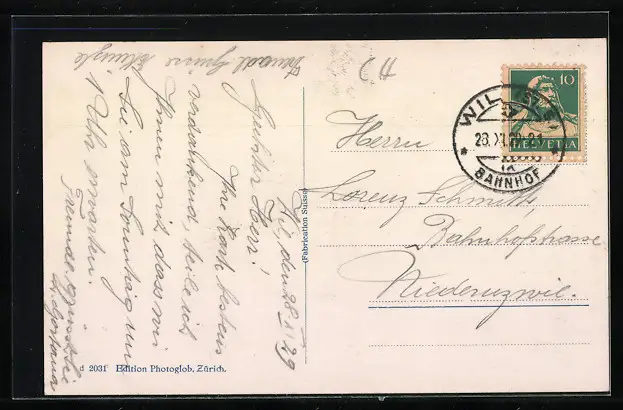 Wil, den 28. XI. 29
Geehrter Herr!
Ihre Karte bestens
verdankend, teile ich
Ihnen mit, dass wir
Sie am Sonntag um
1 Uhr erwarten.
Freundl.
(Fabrication Suisse)
2031 Edition Photoglob, Zürich.
CH
10
HELVETIA
WIL
28.XI.29
BAHNHOF
Herrn
Lorenz Schmitt,
Bahnhofstrasse
Niederuzwil.